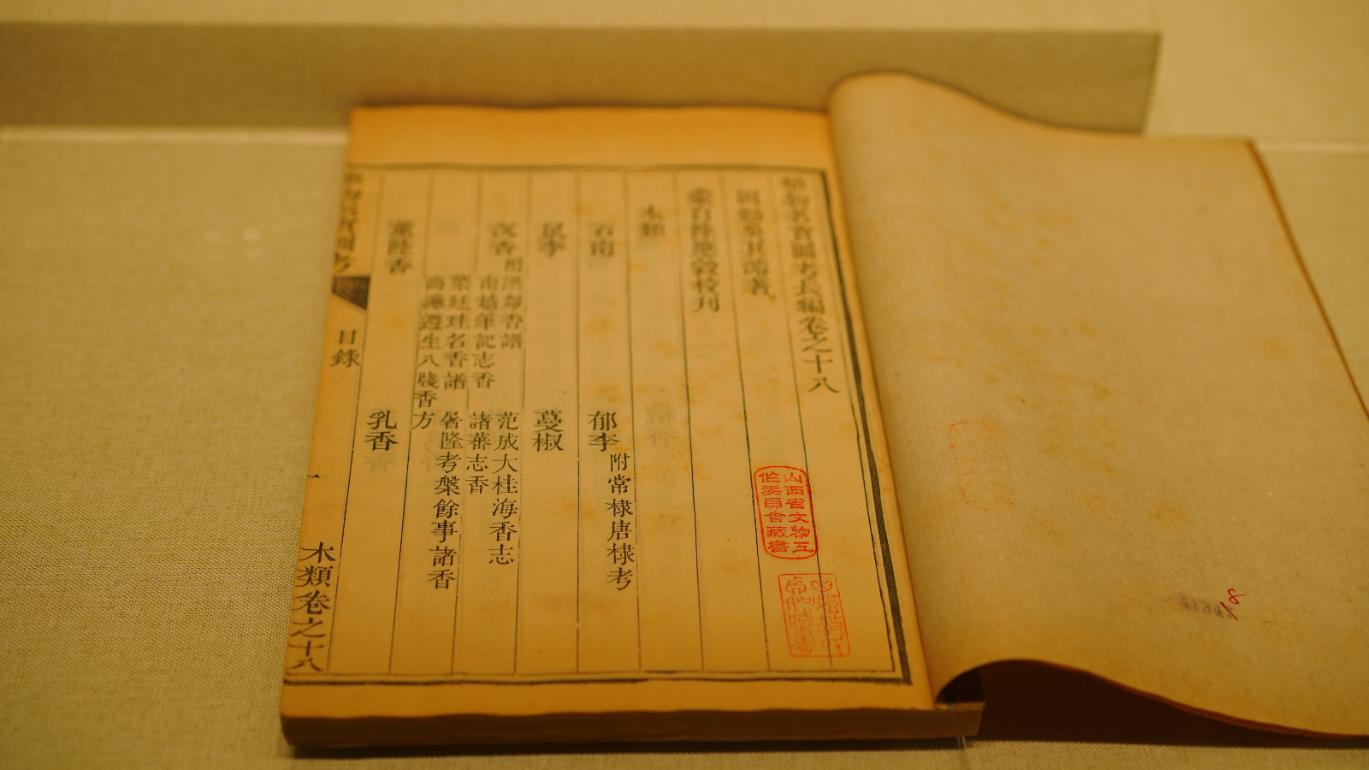 植物名實圖考長編卷之十八
固始吳其濬著
蒙自陸應穀校刊
木類
石南 郁李附常棣唐棣考
鼠李 蔓椒
沉香附洪芻香譜 范成大桂海香志
南越筆記志香 諸蕃志香
葉廷珪名香譜 屠隆考槃餘事諸香
高濂遵生八牋香方
薰陸香 乳香
植物名實圖考 目錄 一 木類卷之十八
山西省文物工
作委員會藏書
8